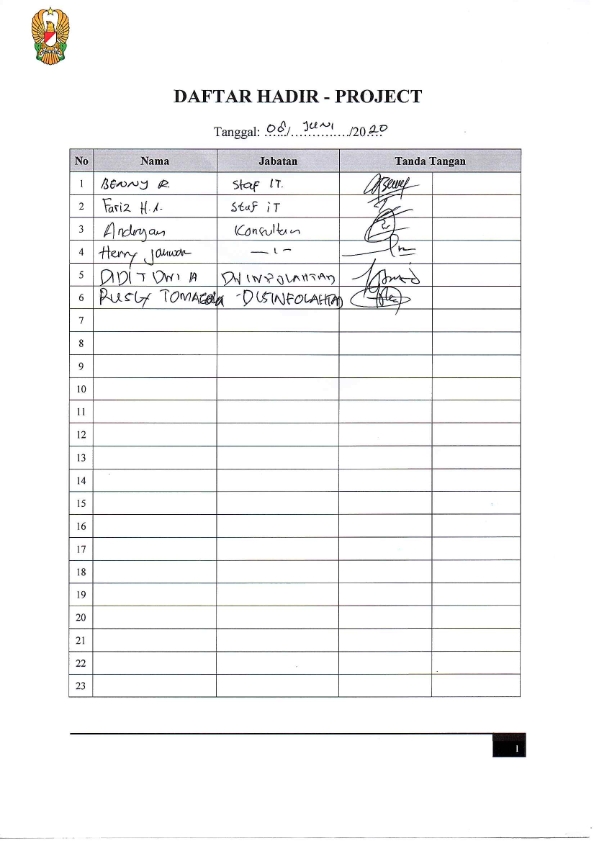 DAFTAR HADIR - PROJECT
Tanggal: 08/ Juni /2020
No Nama Jabatan Tanda Tangan
1 BENNY R. Staf IT.
2 Fariz H. Staf iT
3 Andryan Konsultan
4 Herry — ı —
5 DIDIT DWI A
6 RUSLY TOMAGOLA DISINFOLAHTAD
7
8
9
10
11
12
13
14
15
16
17
18
19
20
21
22
23
1